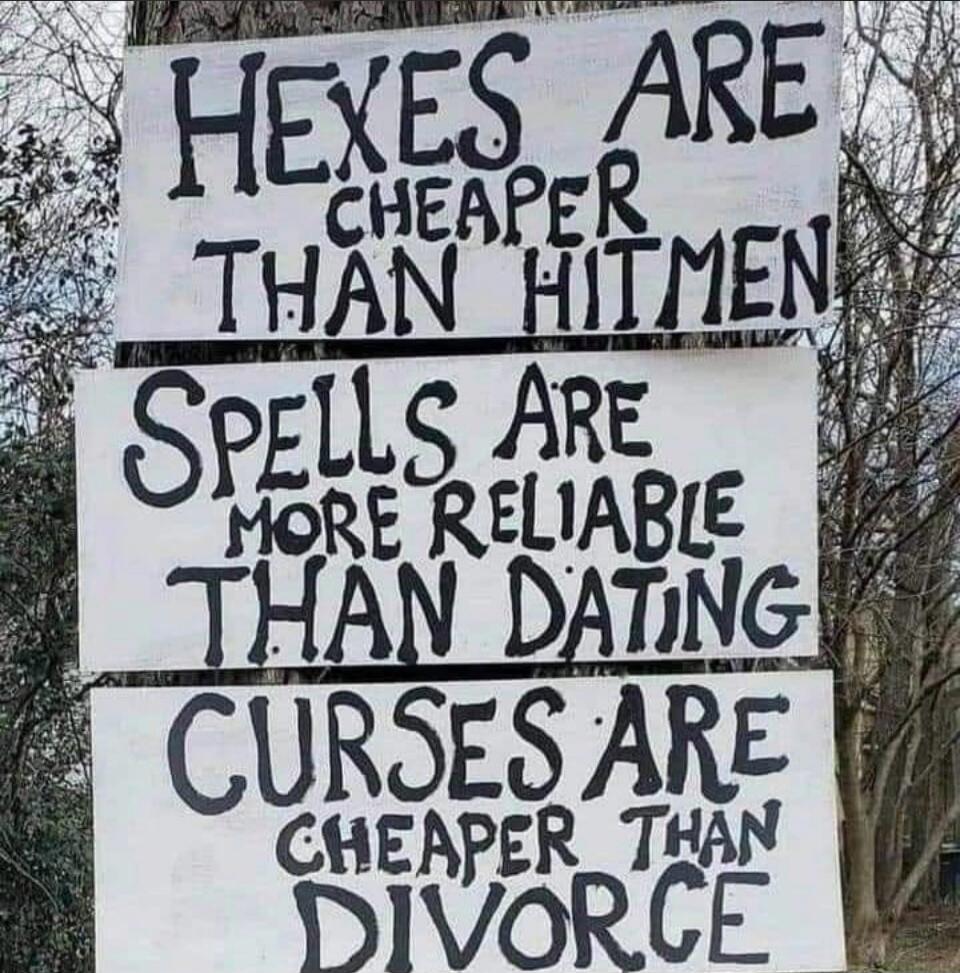 HEXES ARE
CHEAPER
THAN HITMEN
SPELLS ARE
MORE RELIABLE
THAN DATING
CURSES ARE
CHEAPER THAN
DIVORCE